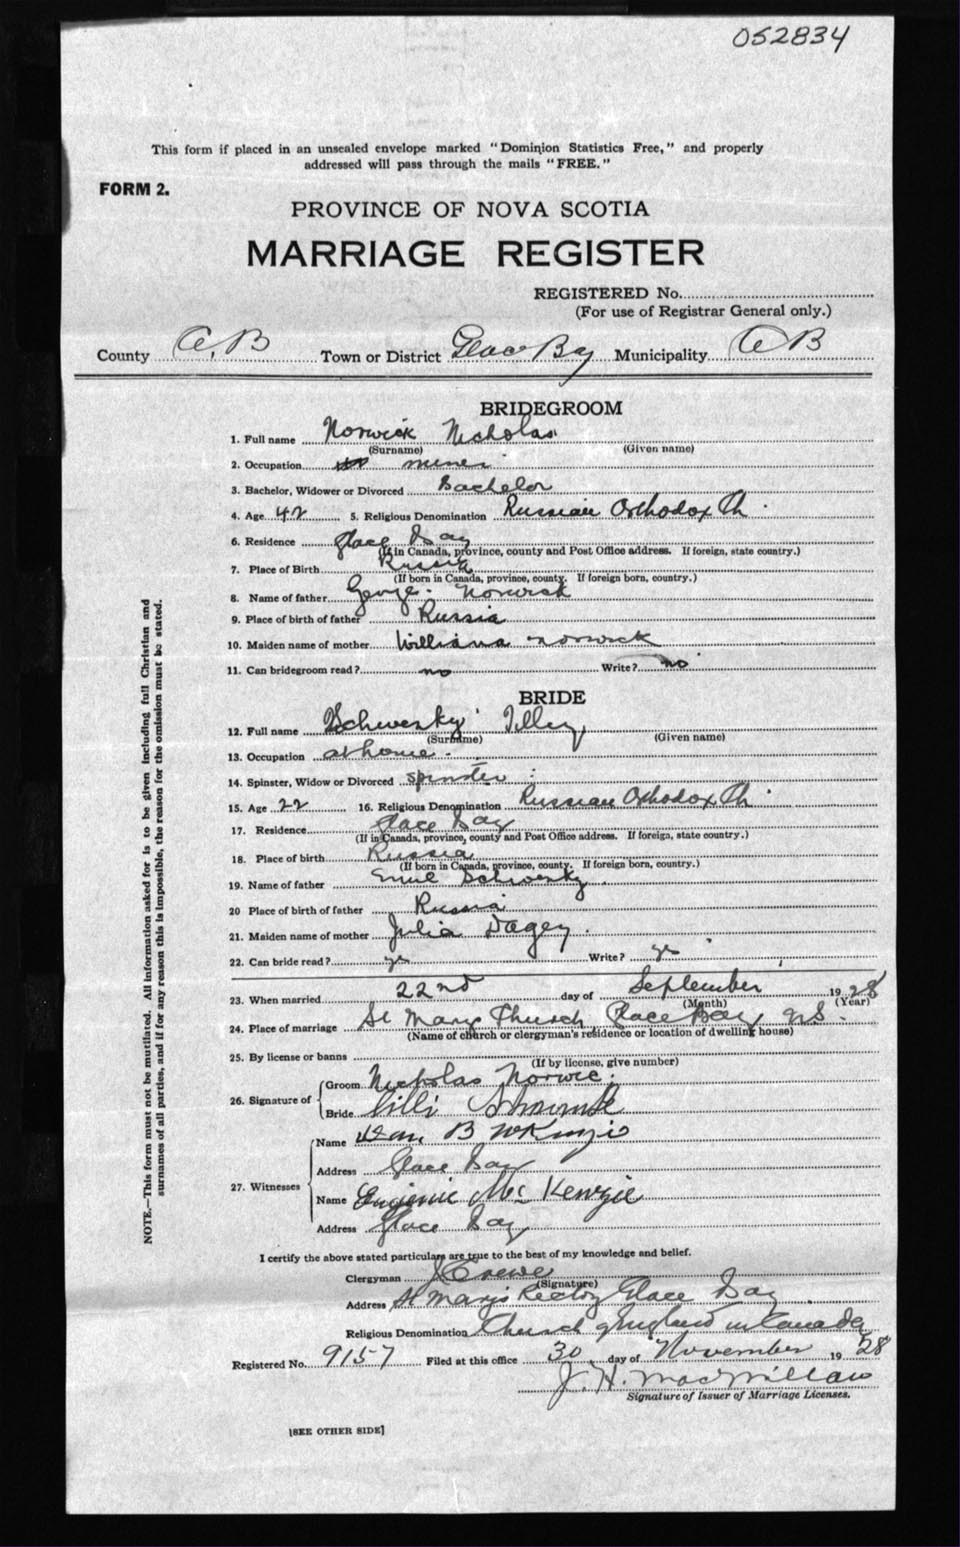 052834
This form if placed in an unsealed envelope marked "Dominion Statistics Free," and properly
addressed will pass through the mails "FREE."
FORM 2.
PROVINCE OF NOVA SCOTIA
MARRIAGE REGISTER
REGISTERED No.
(For use of Registrar General only.)
County C, B Town or District Glace Bay Municipality C B
BRIDEGROOM
1. Full name Norwick Nicholas
(Surname) (Given name)
2. Occupation miner
3. Bachelor, Widower or Divorced Bachelor
4. Age 42 5. Religious Denomination Russian Orthodox Ch
6. Residence Glace Bay
(If in Canada, province, county and Post Office address. If foreign, state country.)
7. Place of Birth Russia
(If born in Canada, province, county. If foreign born, country.)
8. Name of father George Norwick
9. Place of birth of father Russia
10. Maiden name of mother Williana Norwick
11. Can bridegroom read? no Write? no
BRIDE
12. Full name Schwesky Tilley
(Surname) (Given name)
13. Occupation at home
14. Spinster, Widow or Divorced Spinster
15. Age 22 16. Religious Denomination Russian Orthodox Ch
17. Residence Glace Bay
(If in Canada, province, county and Post Office address. If foreign, state country.)
18. Place of birth Russia
(If born in Canada, province, county. If foreign born, country.)
19. Name of father Emil Schwesky
20 Place of birth of father Russia
21. Maiden name of mother Julia Dagey
22. Can bride read? yes Write? yes
23. When married 22nd day of September 1928
(Month) (Year)
24. Place of marriage St Marys Church Glace Bay N.S.
(Name of church or clergyman's residence or location of dwelling house)
25. By license or banns
(If by license, give number)
26. Signature of Groom Nicholas Norwic
Bride Lilli
27. Witnesses Name B McKenzie
Address Glace Bay
Name Eugenie McKenzie
Address Glace Bay
I certify the above stated particulars are true to the best of my knowledge and belief.
Clergyman
(Signature)
Address St Mary's Rectory Glace Bay
Religious Denomination Church of England in Canada
Registered No. 9157 Filed at this office 30 day of November 1928
J. H. MacMillan
Signature of Issuer of Marriage Licenses.
[SEE OTHER SIDE]
NOTE.—This form must not be mutilated. All information asked for is to be given including full Christian and
surnames of all parties, and if for any reason this is impossible, the reason for the omission must be stated.